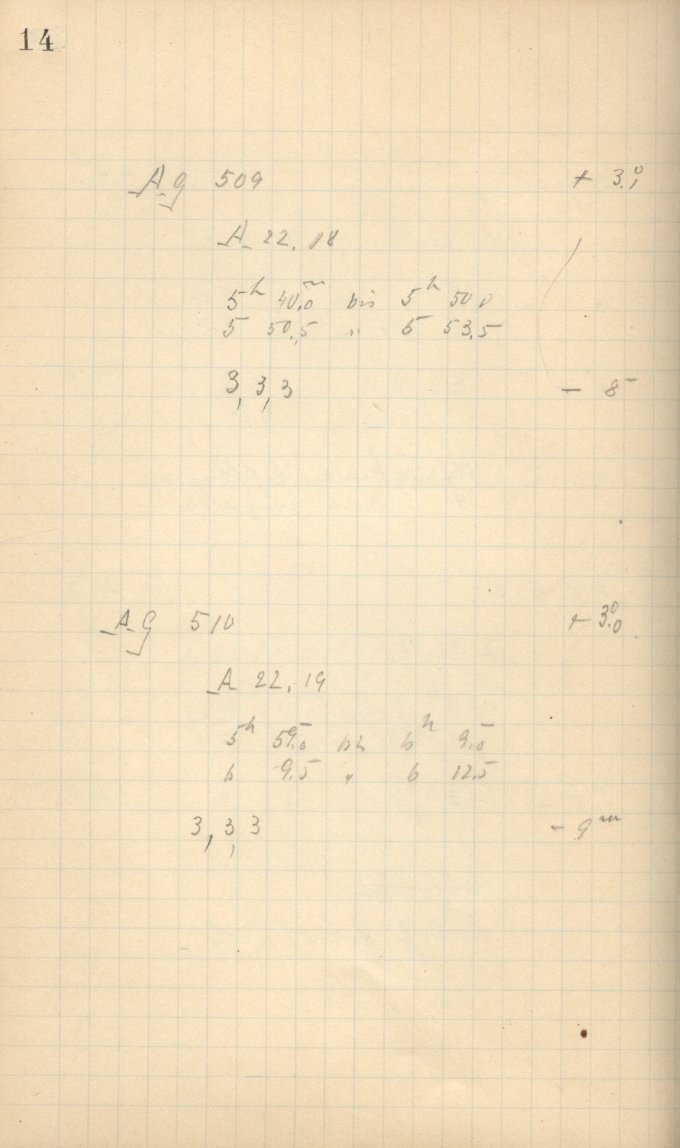 14
AG 509 + 3.°1
A 22.18
5h 40.m0 bis 5h 50.0
5 50.5 " 5 53.5
3, 3, 3 - 8m
AG 510 + 3.°0
A 22.19
5h 59.m0 bis 6h 9.m0
6 9.5 " 6 12.5
3, 3, 3 - 9m